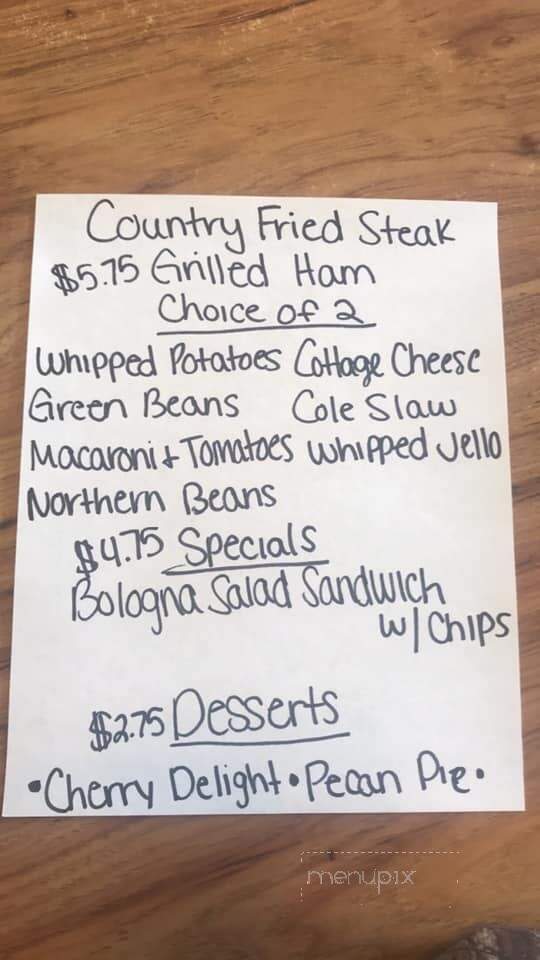 Country Fried Steak
$5.75 Grilled Ham
Choice of 2
Whipped Potatoes Cottage Cheese
Green Beans Cole Slaw
Macaroni + Tomatoes Whipped Jello
Northern Beans
$4.75 Specials
Bologna Salad Sandwich
w/ Chips
$2.75 Desserts
•Cherry Delight•Pecan Pie•
menupix